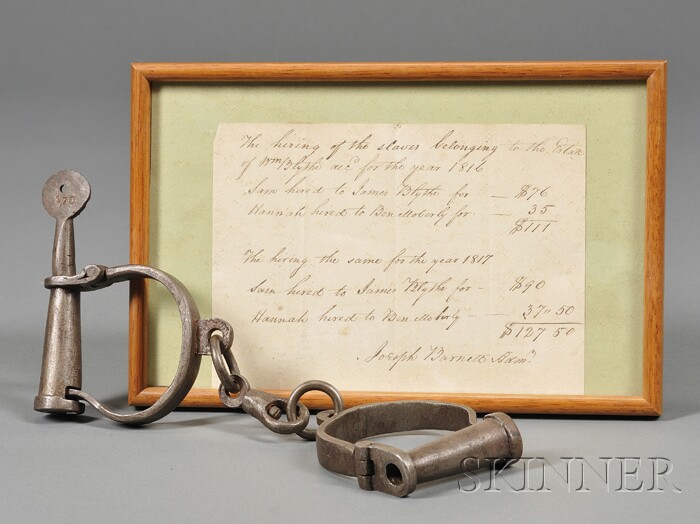 The hiring of the slaves belonging to the Estate
of Wm Blythe decd for the year 1816
Sam hired to James Blythe for — $76
Hannah hired to Ben Moberly for — 35
$111
The hiring the same for the year 1817
Sam hired to James Blythe for — $90
Hannah hired to Ben Moberly — 37" 50
$127 50
Joseph Barnett Admr
SKINNER